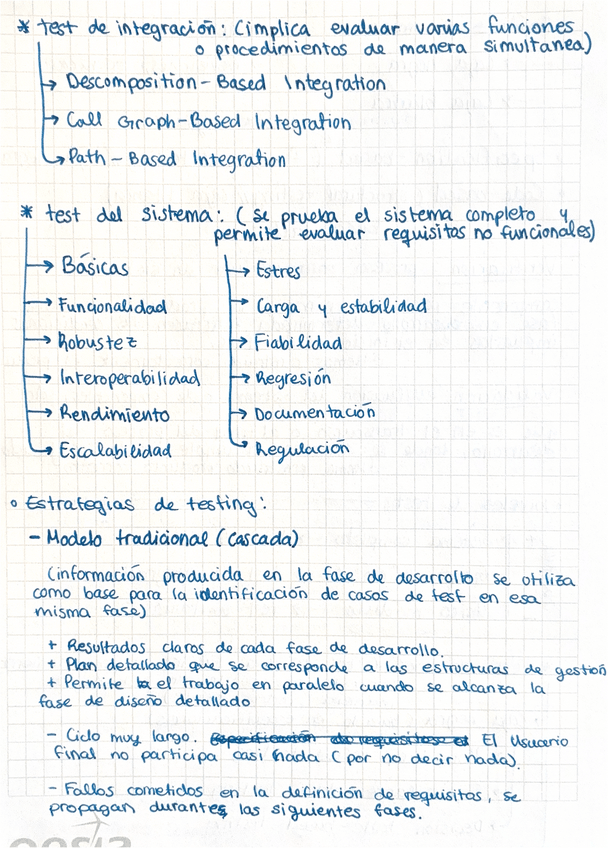 * test de integración: (implica evaluar varias funciones
o procedimientos de manera simultanea)
→ Descomposition-Based Integration
→ Call Graph-Based Integration
→ Path-Based Integration
* test del sistema: (se prueba el sistema completo y
permite evaluar requisitos no funcionales)
→ Básicas
→ Funcionalidad
→ Robustez
→ Interoperabilidad
→ Rendimiento
→ Escalabilidad
→ Estres
→ Carga y estabilidad
→ Fiabilidad
→ Regresión
→ Documentación
→ Regulación
o Estrategias de testing:
- Modelo tradicional (cascada)
(información producida en la fase de desarrollo se utiliza
como base para la identificación de casos de test en esa
misma fase)
+ Resultados claros de cada fase de desarrollo.
+ Plan detallado que se corresponde a las estructuras de gestión
+ Permite el trabajo en paralelo cuando se alcanza la
fase de diseño detallado
- Ciclo muy largo. Especificación de requisitos El Usuario
final no participa casi nada (por no decir nada).
- Fallos cometidos en la definición de requisitos, se
propagan durante las siguientes fases.